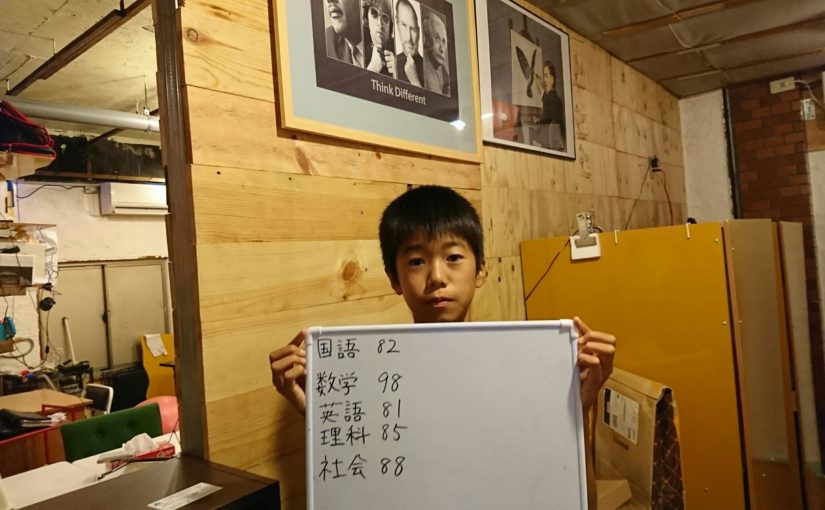 Think Different
国語 82
数学 98
英語 81
理科 85
社会 88